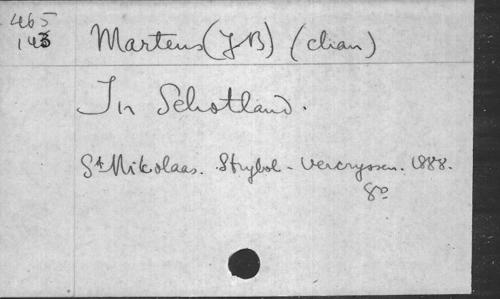 465
143
Martens (J B) (clian)
In Schotland.
St Nikolaas. Strybol - Vercryssen. 1888.
8º